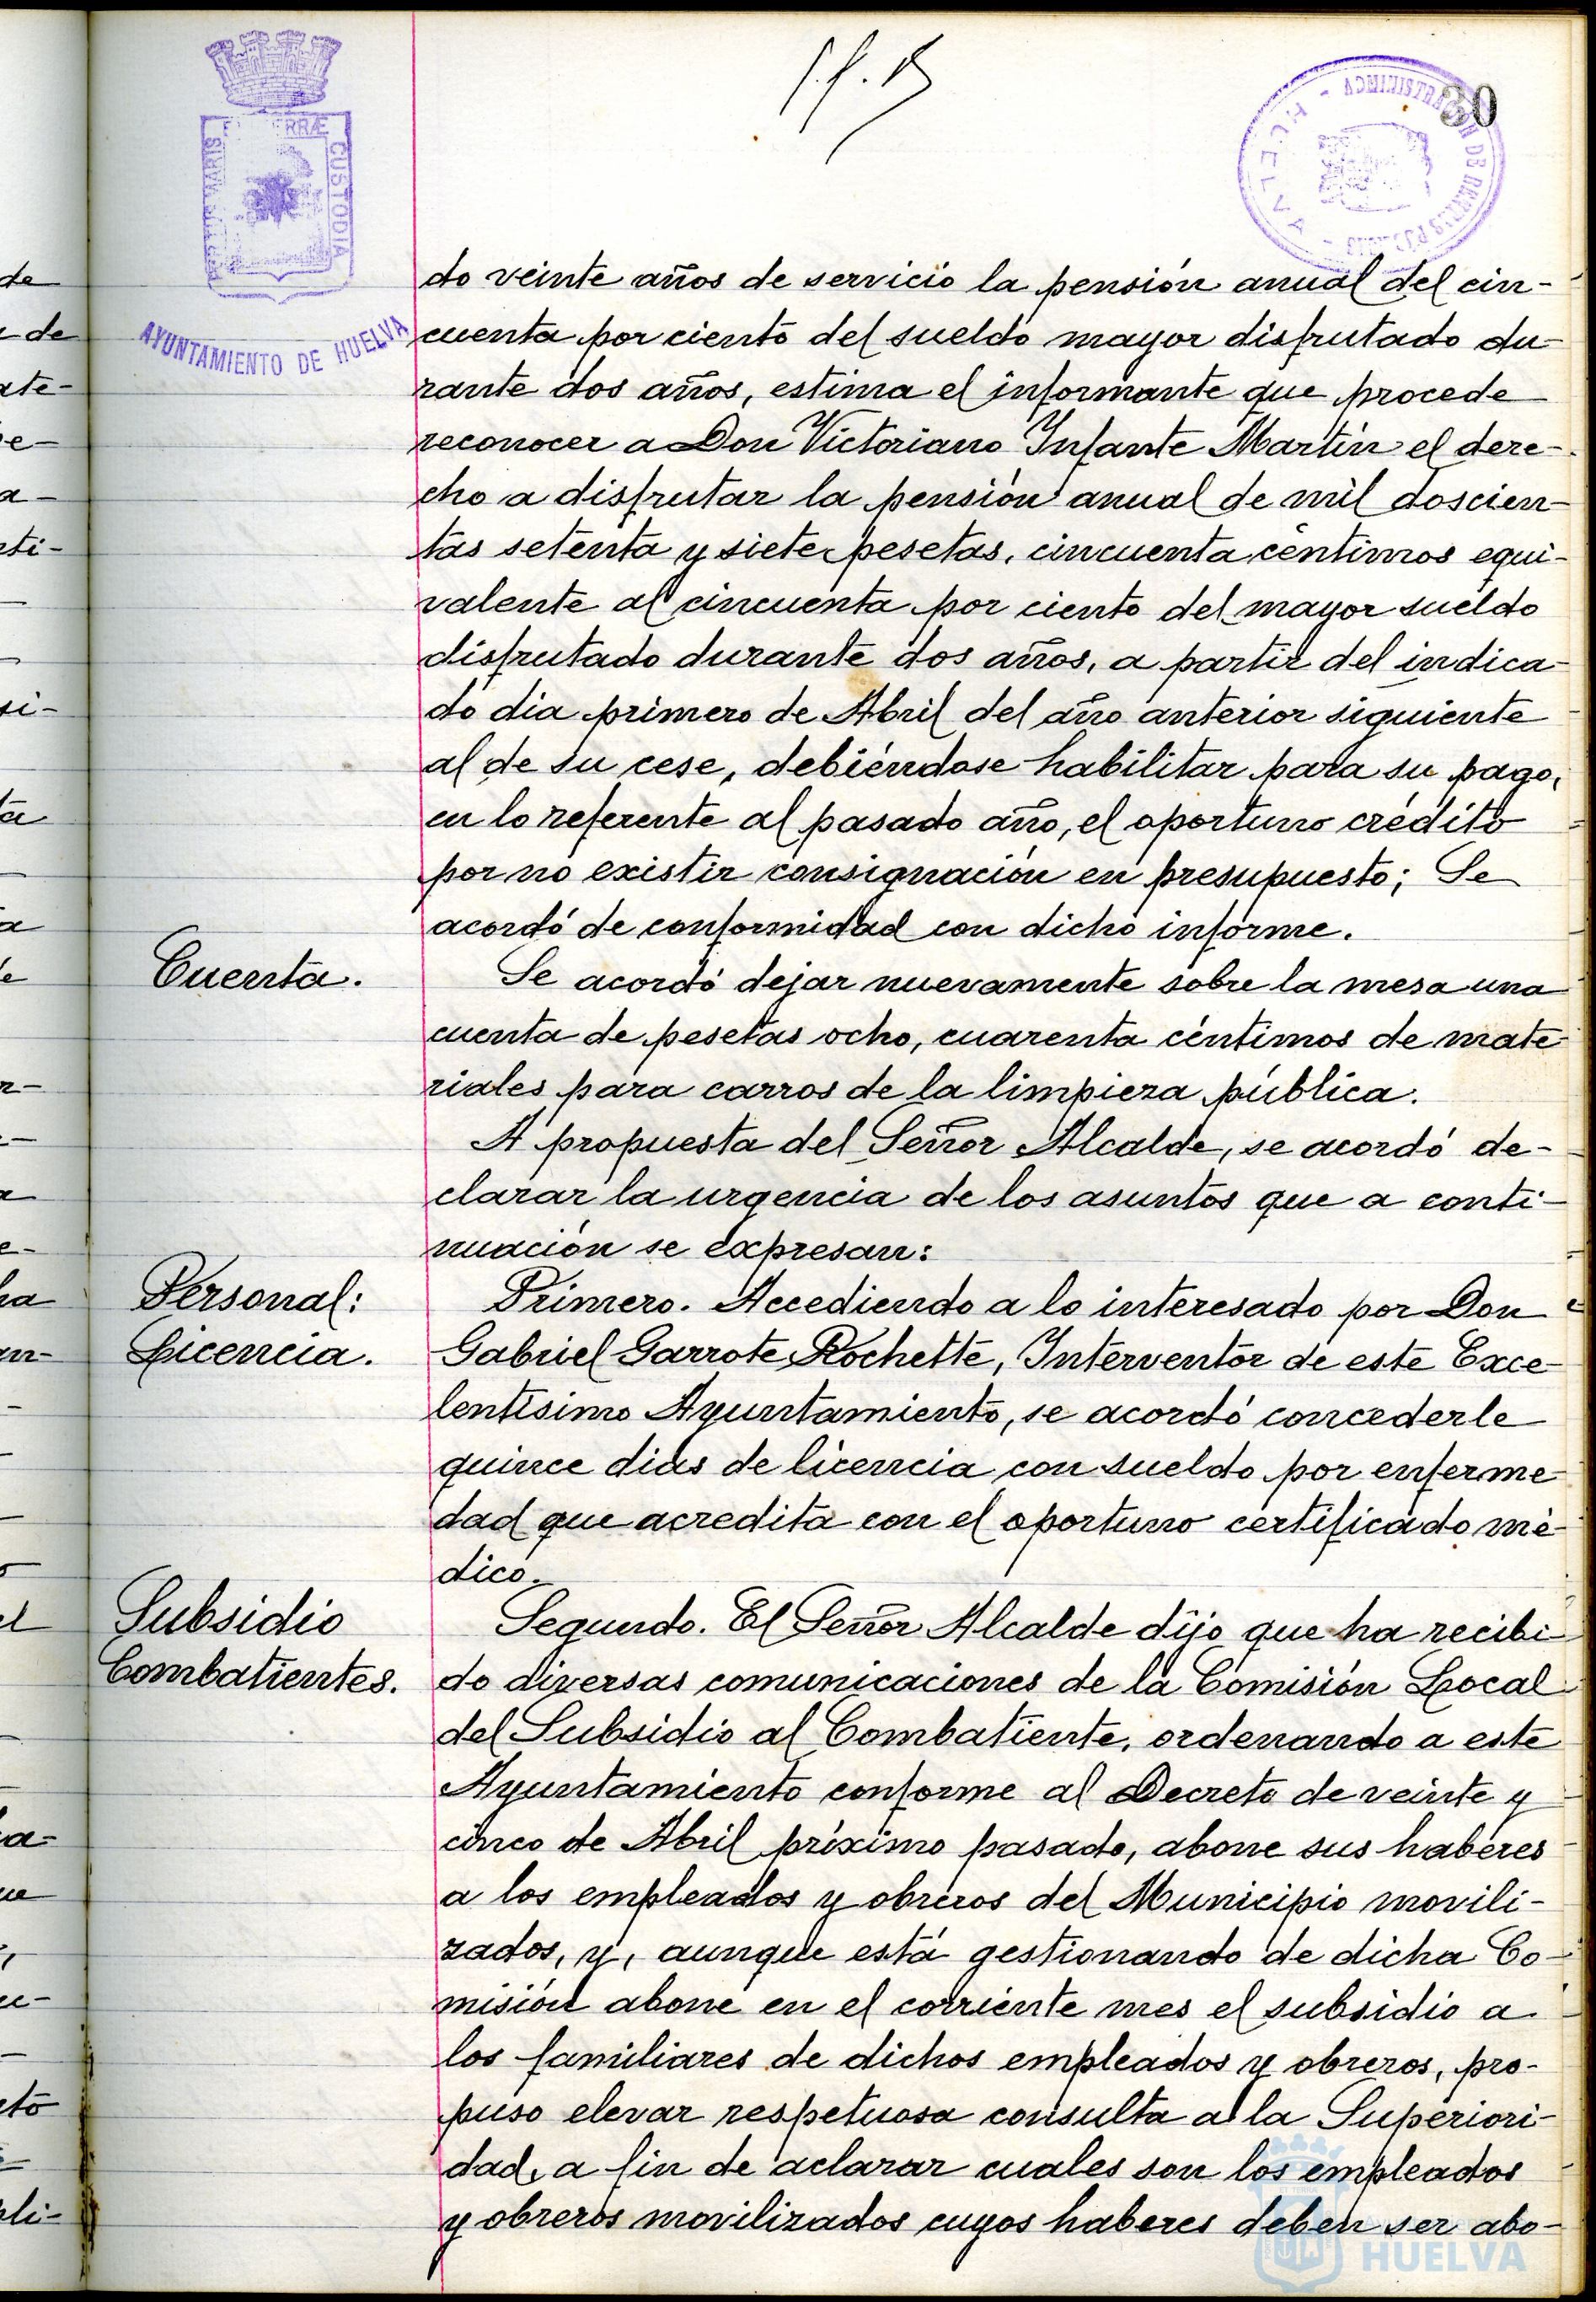 30
PORTUS MARIS
TERRÆ
CUSTODIA
AYUNTAMIENTO DE HUELVA
do veinte años de servicio la pensión anual del cin-
cuenta por ciento del sueldo mayor disfrutado du-
rante dos años, estima el informante que procede
reconocer a Don Victoriano Infante Martín el dere-
cho a disfrutar la pensión anual de mil doscien-
tas setenta y siete pesetas, cincuenta céntimos equi-
valente al cincuenta por ciento del mayor sueldo
disfrutado durante dos años, a partir del indica-
do dia primero de Abril del año anterior siguiente
al de su cese, debiéndose habilitar para su pago,
en lo referente al pasado año, el oportuno crédito
por no existir consignación en presupuesto; Se
acordó de conformidad con dicho informe.
Cuenta.
Se acordó dejar nuevamente sobre la mesa una
cuenta de pesetas ocho, cuarenta céntimos de mate-
riales para carros de la limpieza pública.
A propuesta del Señor Alcalde, se acordó de-
clarar la urgencia de los asuntos que a conti-
nuación se expresan:
Personal:
Licencia.
Primero. Accediendo a lo interesado por Don
Gabriel Garrote Rochette, Interventor de este Exce-
lentísimo Ayuntamiento, se acordó concederle
quince dias de licencia con sueldo por enferme-
dad que acredita con el oportuno certificado mé-
dico.
Subsidio
Combatientes.
Segundo. El Señor Alcalde dijo que ha recibi-
do diversas comunicaciones de la Comisión Local
del Subsidio al Combatiente, ordenando a este
Ayuntamiento conforme al Decreto de veinte y
cinco de Abril próximo pasado, abone sus haberes
a los empleados y obreros del Municipio movili-
zados, y, aunque está gestionando de dicha Co-
misión abone en el corriente mes el subsidio a
los familiares de dichos empleados y obreros, pro-
puso elevar respetuosa consulta a la Superiori-
dad, a fin de aclarar cuales son los empleados
y obreros movilizados cuyos haberes deben ser abo-
HUELVA